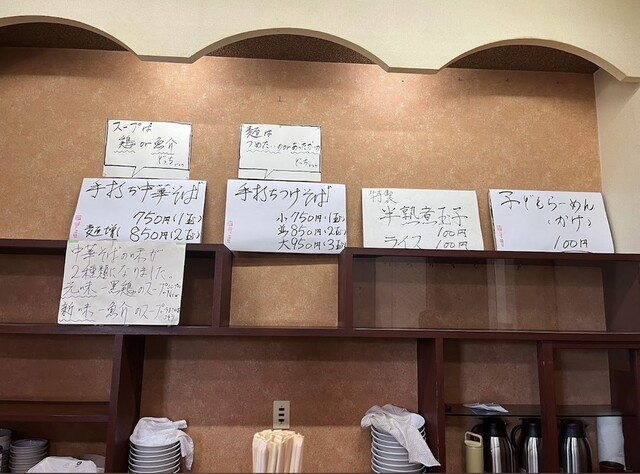 スープは
鶏or魚介
どっち...
麺は
つめたいのorあったかいの
どっち...
手打ち中華そば
750円(1玉)
麺増 850円(2玉)
手打ちつけそば
小 750円(1玉)
並 850円(2玉)
大 950円(3玉)
特製
半熟煮玉子
100円
ライス 100円
子どもらーめん
(かけ)
100円
中華そばの味が
2種類になりました。
元の味 ー 黒鶏のスープ
新味 ー 魚介のスープ